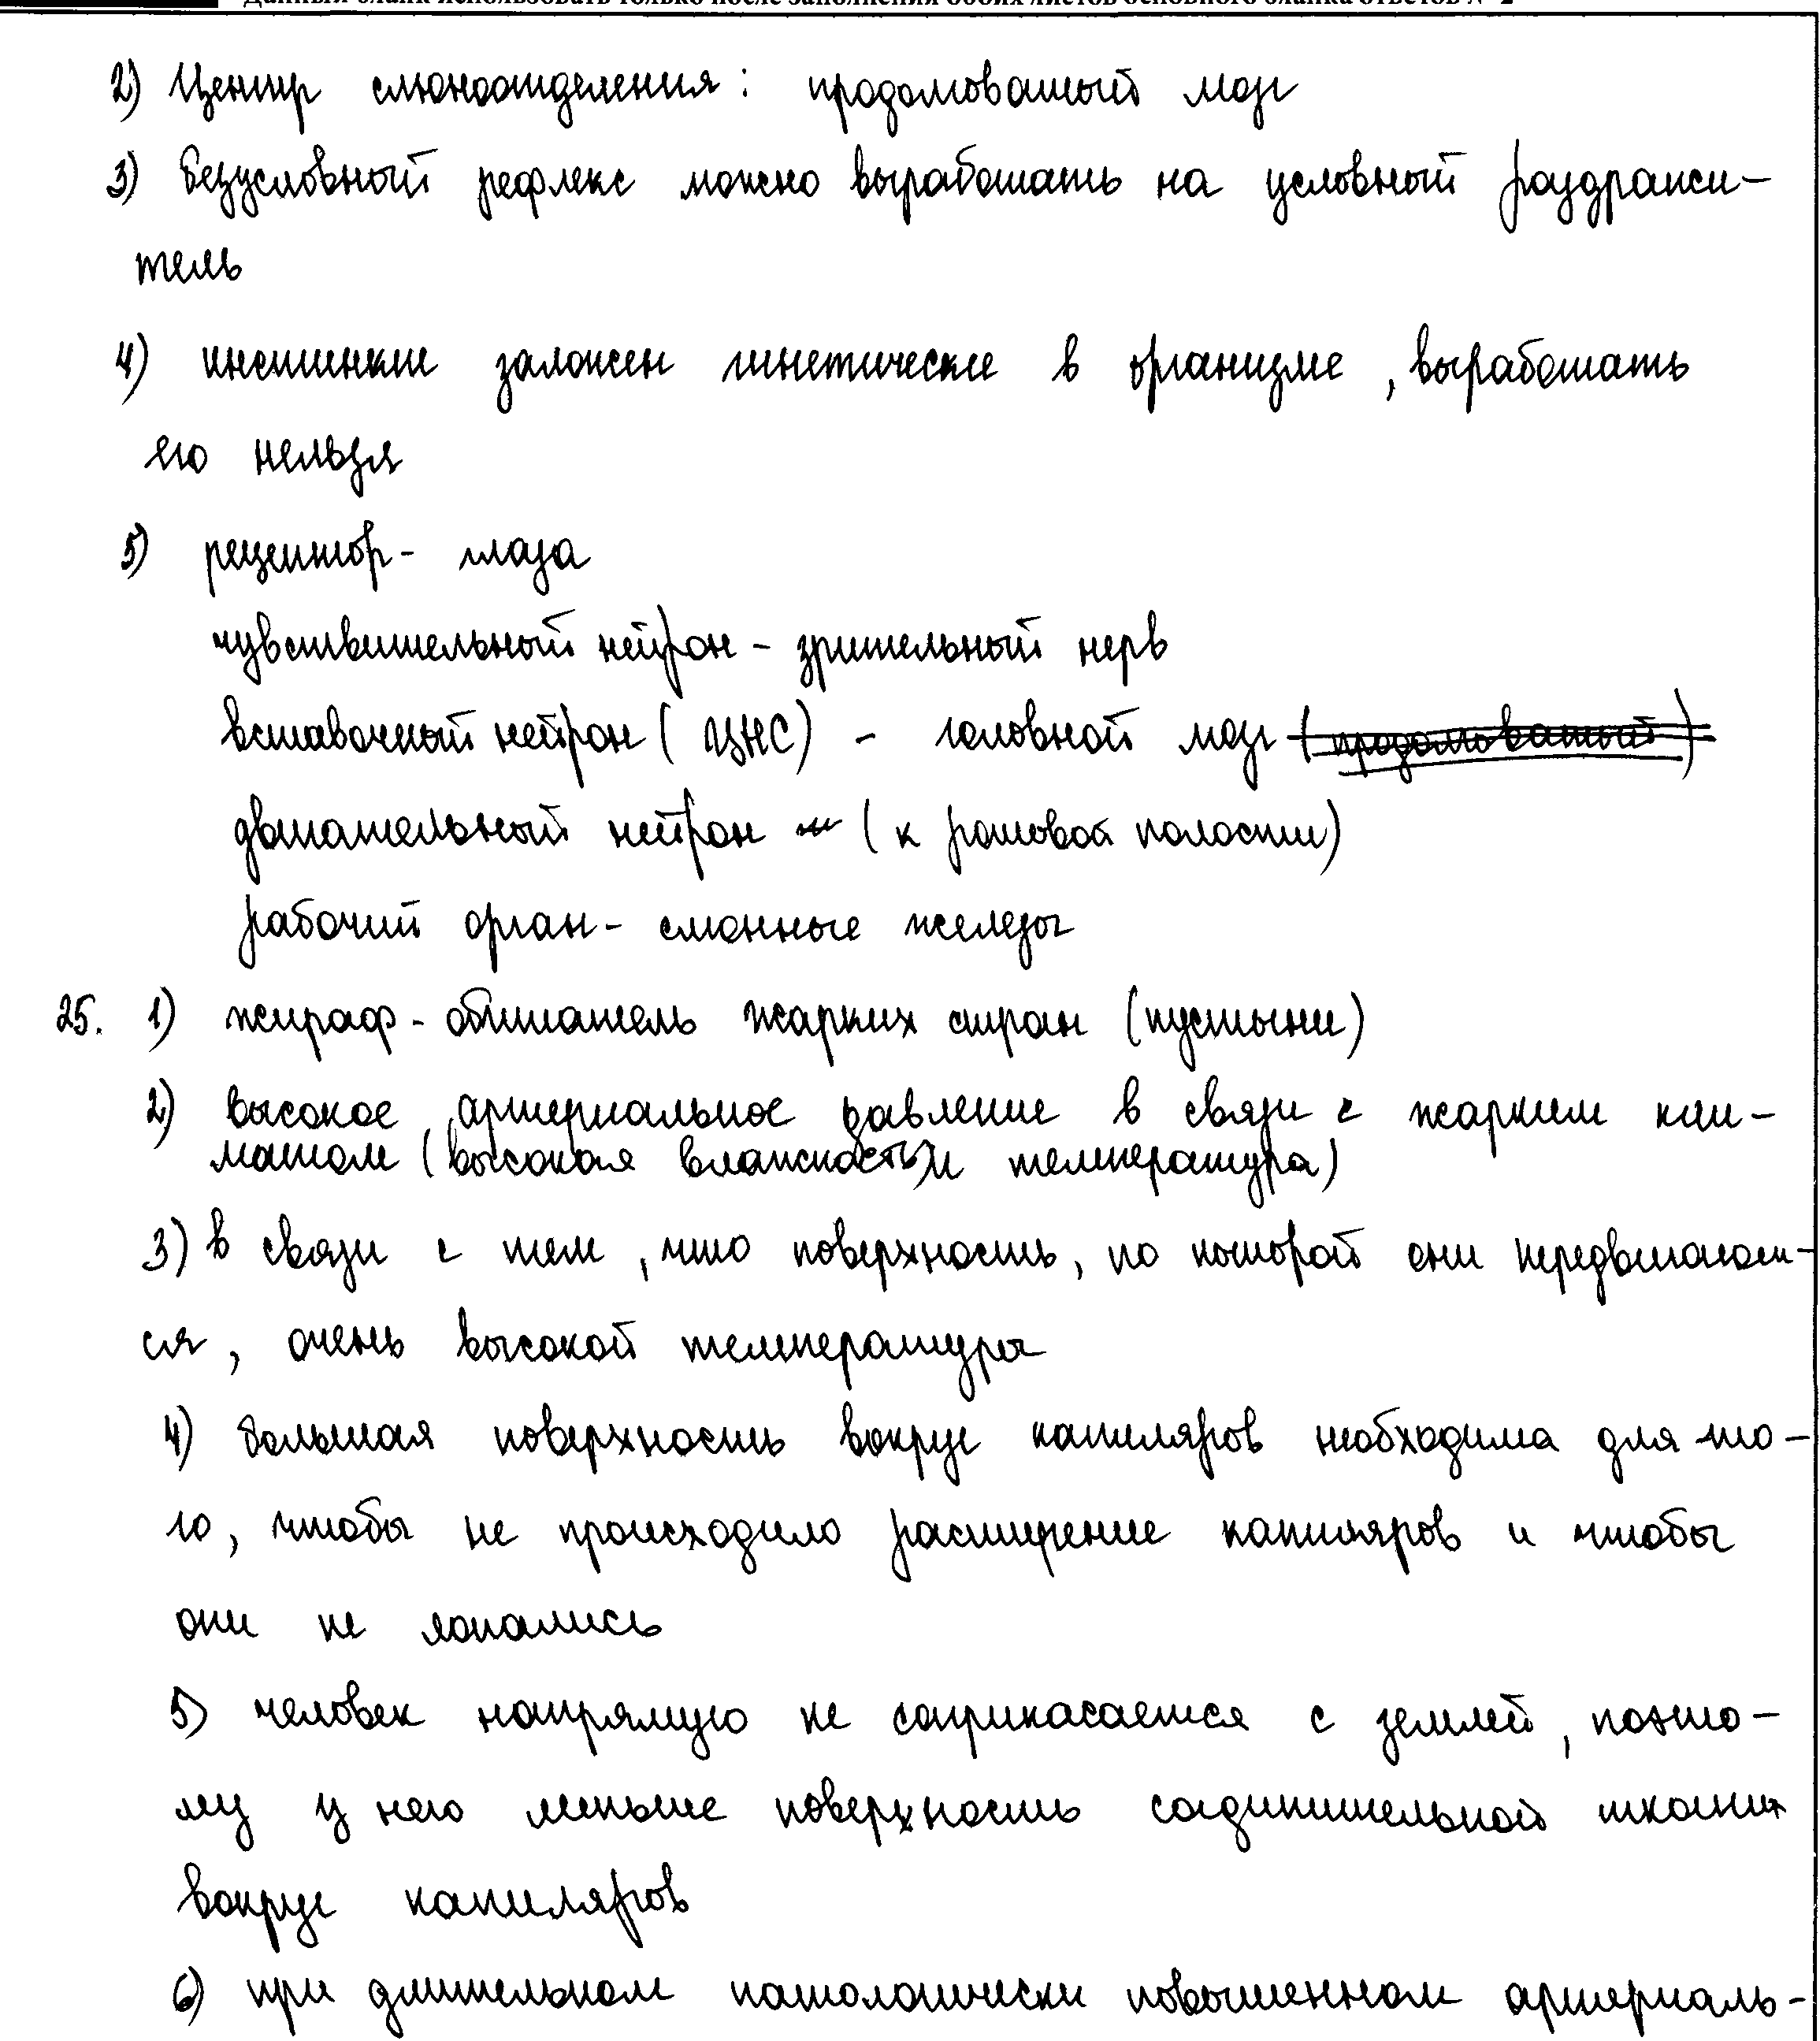 Данный бланк использовать только после заполнения обоих листов основного бланка ответов № 2
2) Центр слюноотделения: продолговатый мозг
3) Безусловный рефлекс можно выработать на условный раздражи-
тель
4) инстинкт заложен гинетически в организме, выработать
его нельзя
5) рецептор - глаза
чувствительный нейрон - зрительный нерв
вставочный нейрон (ЦНС) - головной мозг (продолговатый)
двигательный нейрон (к ротовой полости)
рабочий орган - слюнные железы
25. 1) жираф - обитатель жарких стран (пустыни)
2) высокое артериальное давление в связи с жарким кли-
матом (высокая влажность и температура)
3) в связи с тем, что поверхность, по которой они передвигают-
ся, очень высокой температуры
4) большая поверхность вокруг капиляров необходима для то-
го, чтобы не происходило расширение капиляров и чтобы
они не лопались
5) человек напрямую не соприкасается с землей, поэто-
му у него меньше поверхность соединительной ткани
вокруг капиляров
6) при длительном патологически повышенном артериаль-